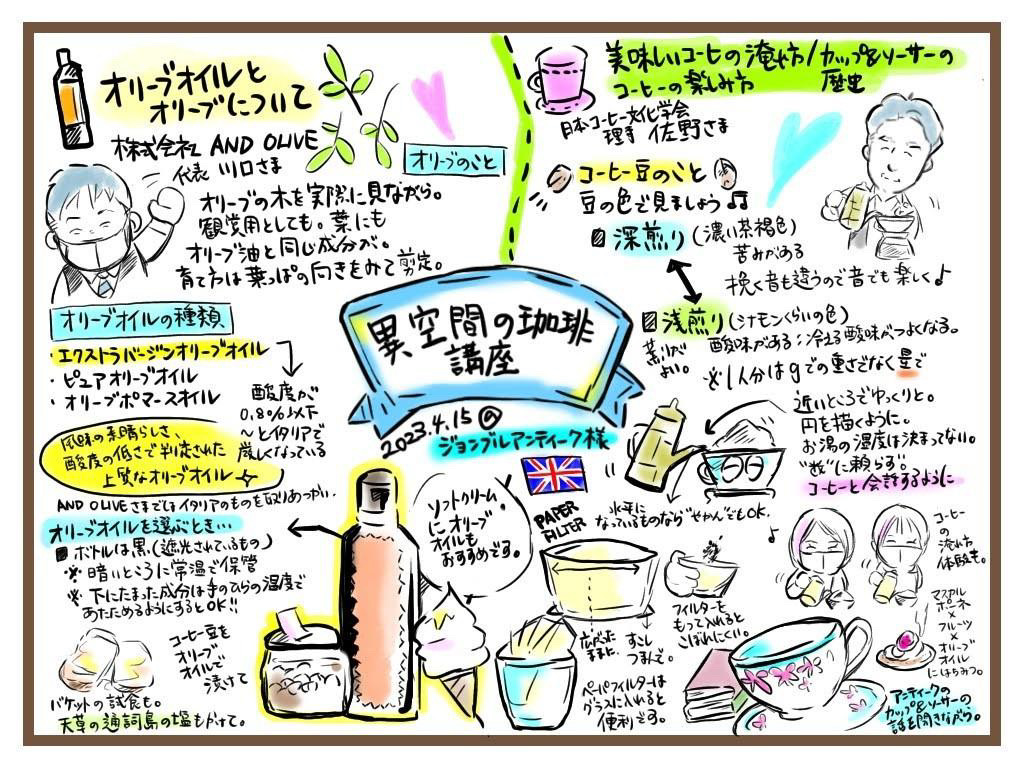 オリーブオイルと
オリーブについて
株式会社 AND OLIVE
代表 川口さま
オリーブのこと
オリーブの木を実際に見ながら。
観賞用としても。葉にも
オリーブ油と同じ成分が。
育て方は葉っぱの向きをみて剪定。
オリーブオイルの種類、
・エクストラバージンオリーブオイル
・ピュアオリーブオイル
・オリーブポマースオイル
酸度が
0.8%以下
〜とイタリアで
厳しくなっている
風味の素晴らしさ、
酸度の低さで判定された
上質なオリーブオイル
AND OLIVEさまではイタリアのものを取りあつかい。
オリーブオイルを選ぶとき…
■ボトルは黒(遮光されているもの)
※暗いところに常温で保管
※下にたまった成分は手のひらの温度で
あたためるようにするとOK!!
コーヒー豆を
オリーブ
オイルで
漬けて
バケットの試食も。
天草の通詞島の塩もかけて。
異空間の珈琲
講座
2023.4.15@
ジョンブルアンティーク様
ソフトクリーム
にオリーブ
オイルも
おすすめです。
美味しいコーヒの淹れ方/カップ&ソーサーの
コーヒーの楽しみ方 歴史
日本コーヒー文化学会
理事 佐野さま
コーヒー豆のこと
豆の色で見ましょう♫
■深煎り(濃い茶褐色)
苦みがある
挽く音も違うので音でも楽しく♪
■浅煎り(シナモンくらいの色)
酸味がある:冷える酸味がつよくなる。
蒸りが
よい。
※1人分はgでの重さでなく量で
近いところでゆっくりと。
円を描くように。
お湯の温度は決まってない。
に頼らず。
コーヒーと会話するように
水平に
なっているものなら"やかん"でもOK.
PAPER
FILTER
広がった
ままに.
すこし
つまんで。
フィルターを
もって入れると
こぼれにくい。
ペーパフィルターは
グラスに入れると
便利です。
コーヒー
の
淹れ方
体験も。
マスカル
ポーネ
×
フルーツ
×
オリーブ
オイル
にはちみつ。
アンティークの
カップ&ソーサーの
話を聞きながら。